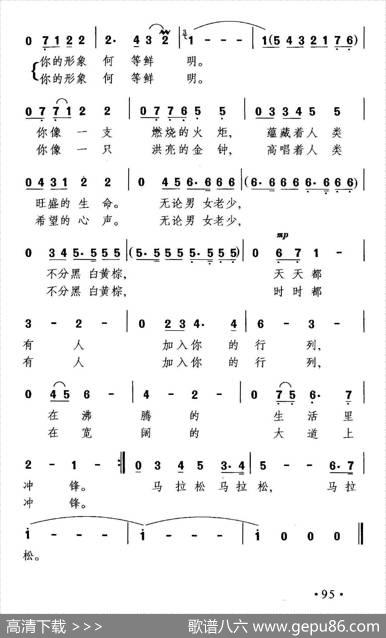 0 7122 | 2· 432 | 1 - - - | 1(5 432176)
你的形象 何 等鲜 明。
你的形象 何 等鲜 明。
0 77122 | 0 7765 5 | 0 22345
你像 一 支 燃烧的火 炬, 蕴藏着人 类
你像 一 只 洪亮的金 钟, 高唱着人 类
0 0431 2 2 | 0 456·666 | (6·666 6·666)
旺盛的 生 命。 无论男 女老少,
希望的 心 声。 无论男 女老少,
mp
0 345·555 | (5·555 5·555) | 0 671 -
不分黑 白黄棕, 天天都
不分黑 白黄棕, 时时都
3 - 2 - | 0 23 4· 4 | 6 - 3 -
有 人 加入你 的 行 列,
有 人 加入你 的 行 列,
0 45 6 - | 4 - 2 - | 0 75 6· 7
在 沸 腾 的 生 活里
在 宽 阔 的 大 道上
2 - 1 - :‖ 0 3 4 5 3·4 | 5 - - 6·7
冲 锋。 马拉松 马拉 松, 马拉
冲 锋。
1 - - - | 1 - - - | 1 - - - | 1 0 0 0 ‖
松。
· 95 ·
高清下载 >>> 歌谱八六 www.gepu86.com